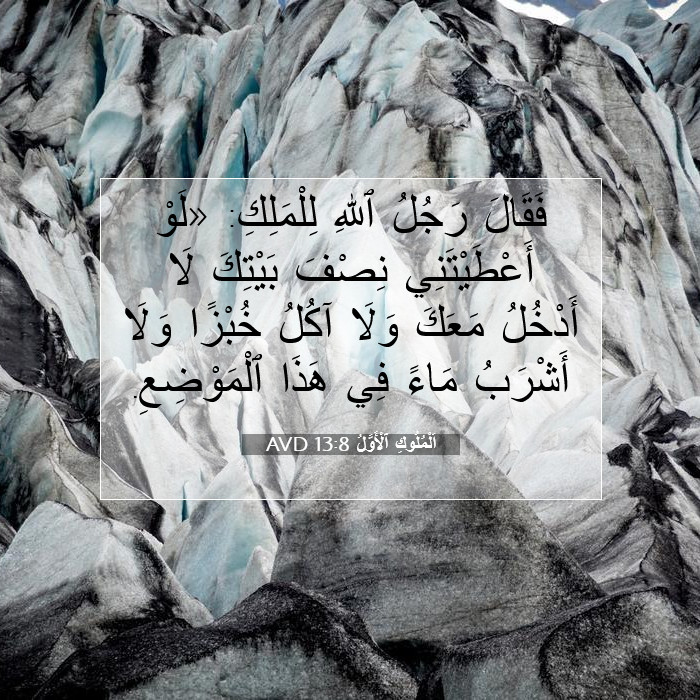 فَقَالَ رَجُلُ ٱللهِ لِلْمَلِكِ: «لَوْ
أَعْطَيْتَنِي نِصْفَ بَيْتِكَ لَا
أَدْخُلُ مَعَكَ وَلَا آكُلُ خُبْزًا وَلَا
أَشْرَبُ مَاءً فِي هَذَا ٱلْمَوْضِعِ.
اَلْمُلُوكِ ٱلْأَوَّلُ 13:8 AVD